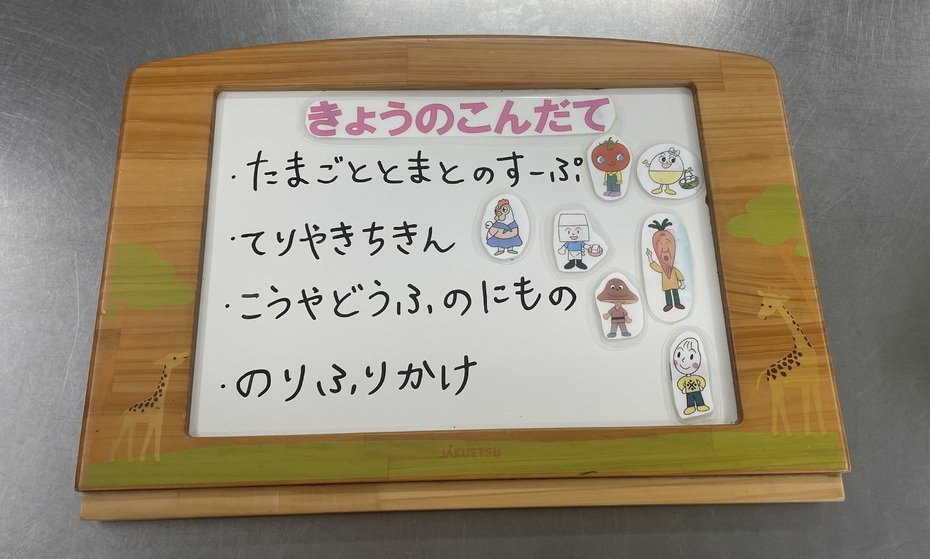 きょうのこんだて
・たまごととまとのすーぷ
・てりやきちきん
・こうやどうふのにもの
・のりふりかけ
JAKUETSU